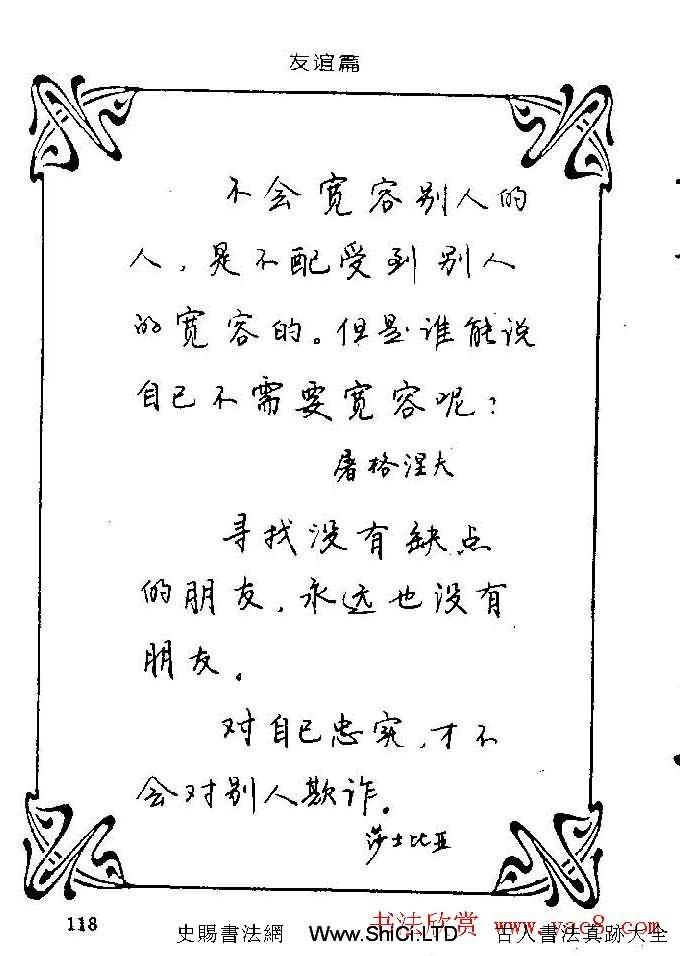 友谊篇
不会宽容别人的
人，是不配受到别人
的宽容的。但是谁能说
自己不需要宽容呢？
屠格涅夫
寻找没有缺点
的朋友，永远也没有
朋友。
对自己忠实，才不
会对别人欺诈。
莎士比亚
118
书法欣赏 www.yac8.com
史賜書法網 Www.ShiCi.LTD 古人書法真跡大全